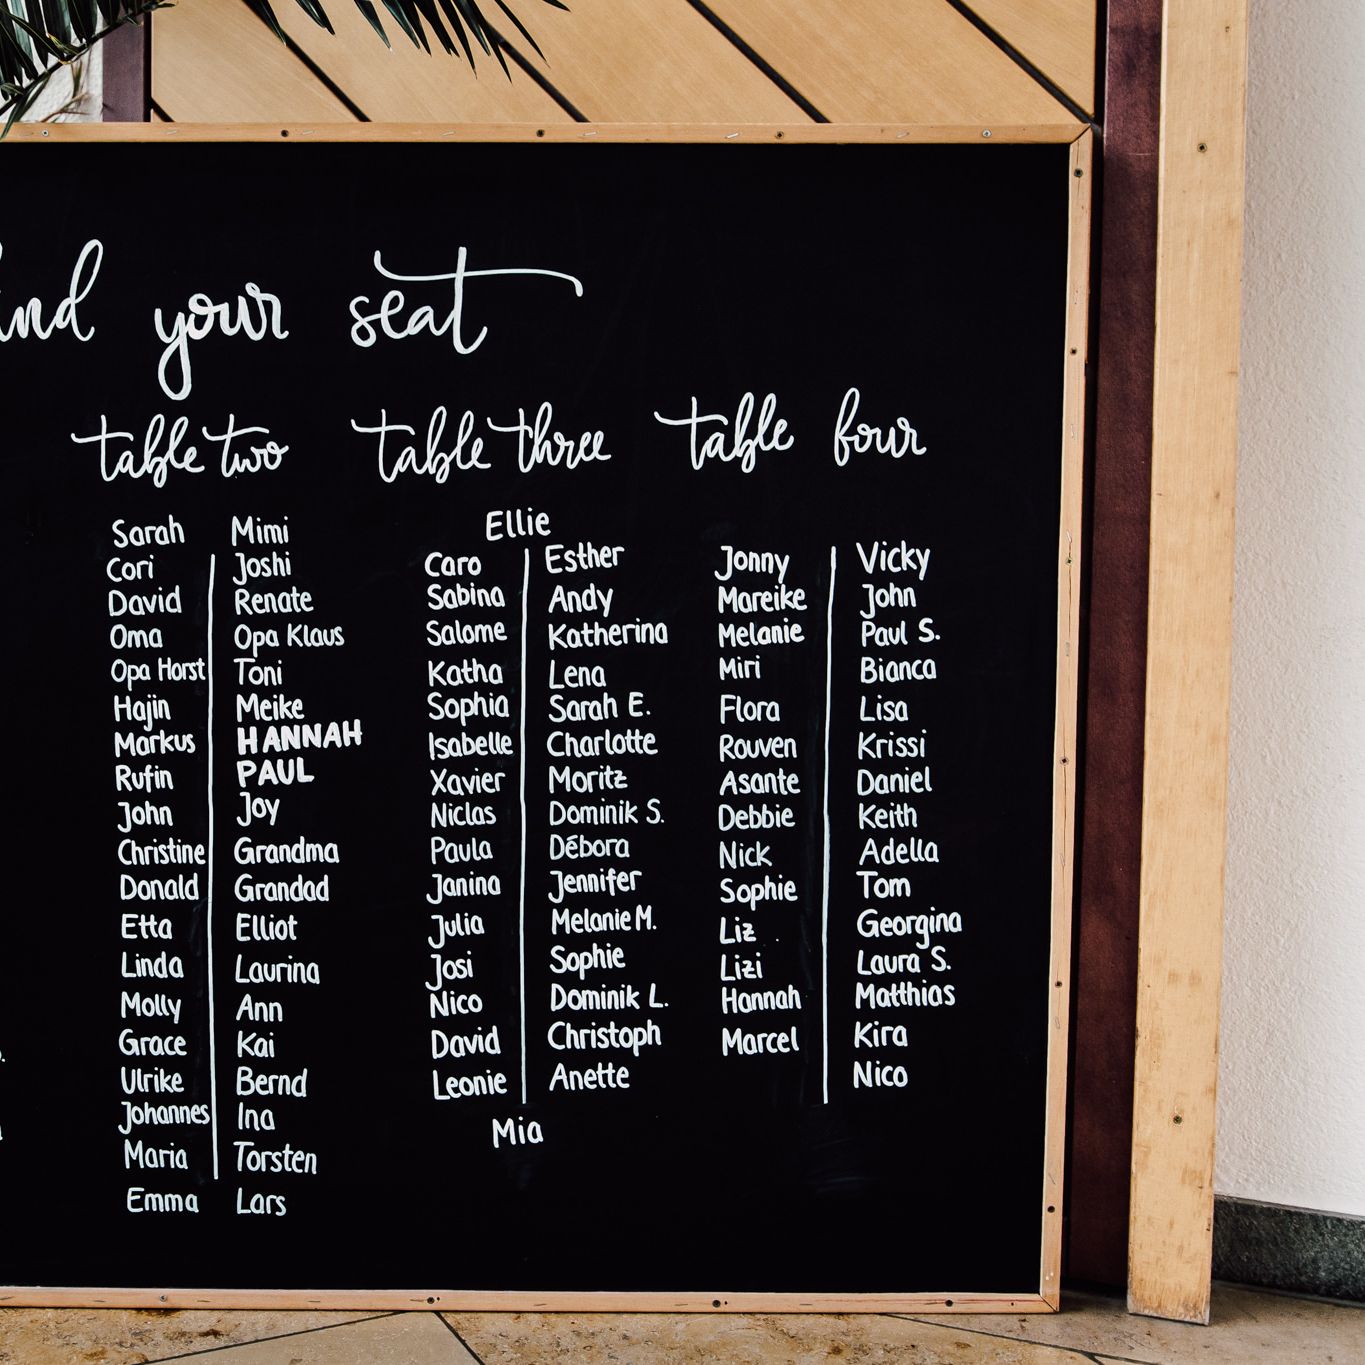 your seat
table two
Sarah Mimi
Cori Joshi
David Renate
Oma Opa Klaus
Opa Horst Toni
Hajin Meike
Markus HANNAH
Rufin PAUL
John Joy
Christine Grandma
Donald Grandad
Etta Elliot
Linda Laurina
Molly Ann
Grace Kai
Ulrike Bernd
Johannes Ina
Maria Torsten
Emma Lars
table three
Ellie
Caro Esther
Sabina Andy
Salome Katherina
Katha Lena
Sophia Sarah E.
Isabelle Charlotte
Xavier Moritz
Niclas Dominik S.
Paula Débora
Janina Jennifer
Julia Melanie M.
Josi Sophie
Nico Dominik L.
David Christoph
Leonie Anette
Mia
table four
Jonny Vicky
Mareike John
Melanie Paul S.
Miri Bianca
Flora Lisa
Rouven Krissi
Asante Daniel
Debbie Keith
Nick Adella
Sophie Tom
Liz Georgina
Lizi Laura S.
Hannah Matthias
Marcel Kira
Nico